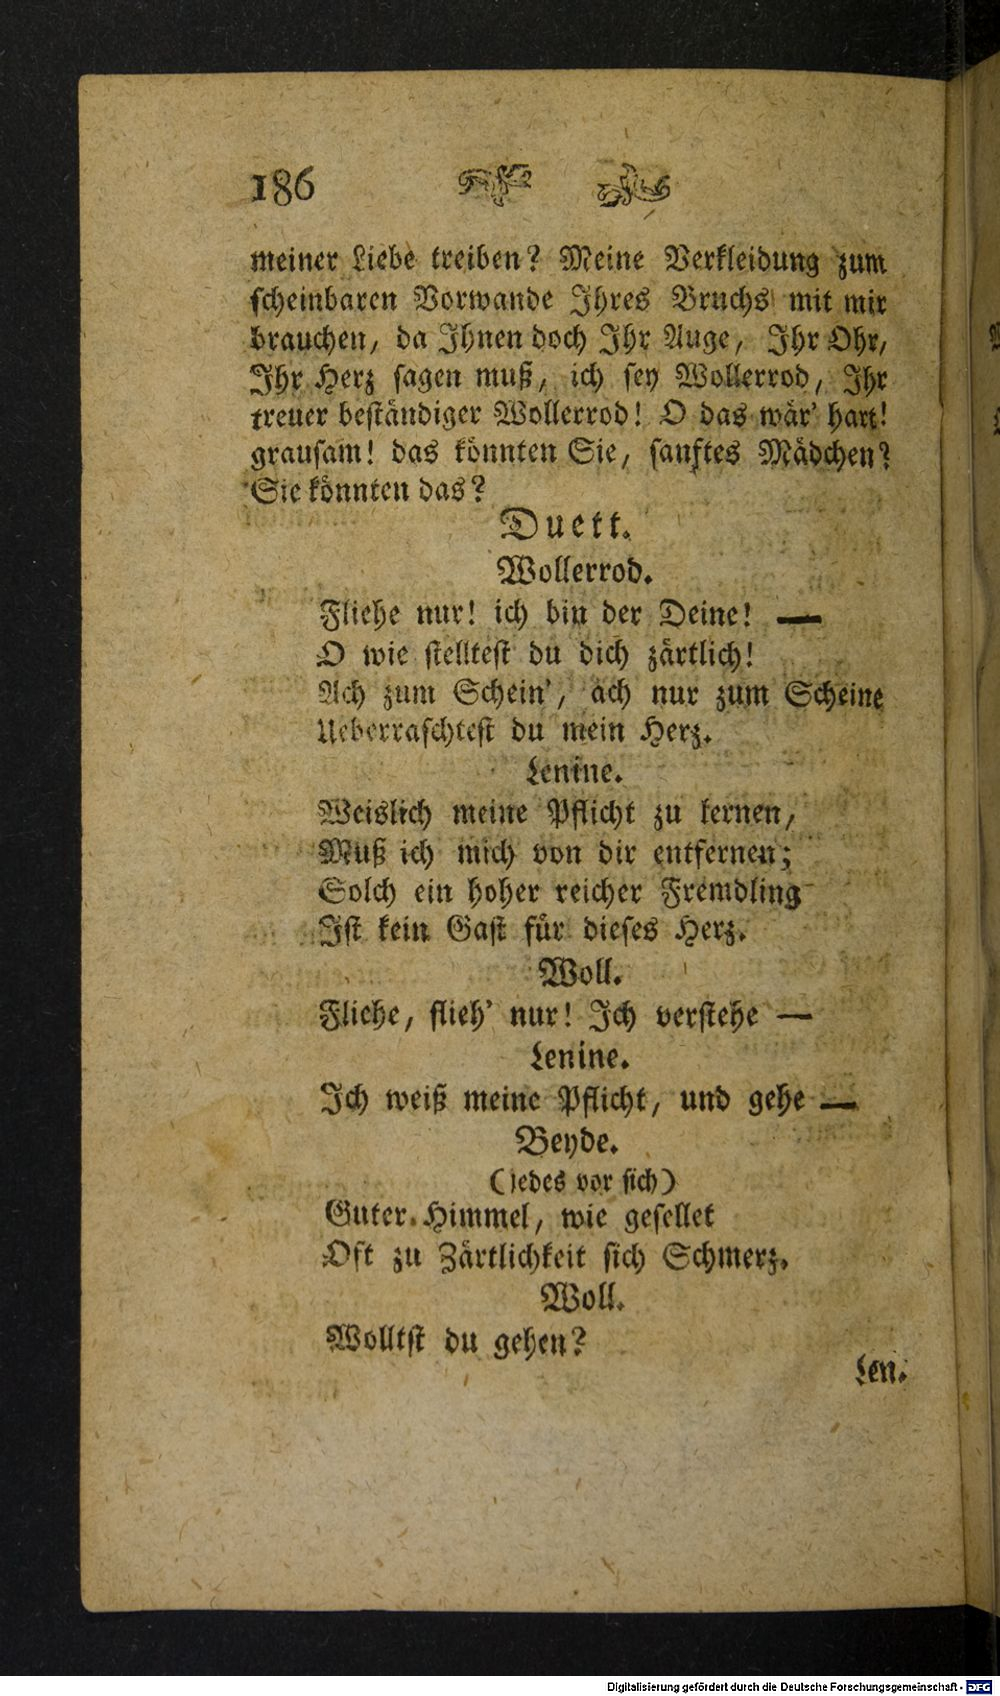 186
meiner Liebe treiben? Meine Verkleidung zum
scheinbaren Vorwande Ihres Bruchs mit mir
brauchen, da Ihnen doch Ihr Auge, Ihr Ohr,
Ihr Herz sagen muß, ich sey Wollerrod, Ihr
treuer beständiger Wollerrod! O das wär' hart!
grausam! das könnten Sie, sanftes Mädchen?
Sie könnten das?
Duett.
Wollerrod.
Fliehe nur! ich bin der Deine! —
O wie stelltest du dich zärtlich!
Ach zum Schein', ach nur zum Scheine
Ueberraschtest du mein Herz.
Lenine.
Weislich meine Pflicht zu lernen,
Muß ich mich von dir entfernen;
Solch ein hoher reicher Fremdling
Ist kein Gast für dieses Herz.
Woll.
Fliehe, flieh' nur! Ich verstehe —
Lenine.
Ich weiß meine Pflicht, und gehe —
Beyde.
(jedes vor sich)
Guter Himmel, wie gesellet
Oft zu Zärtlichkeit sich Schmerz.
Woll.
Wolltst du gehen?
Len.
Digitalisierung gefördert durch die Deutsche Forschungsgemeinschaft - DFG